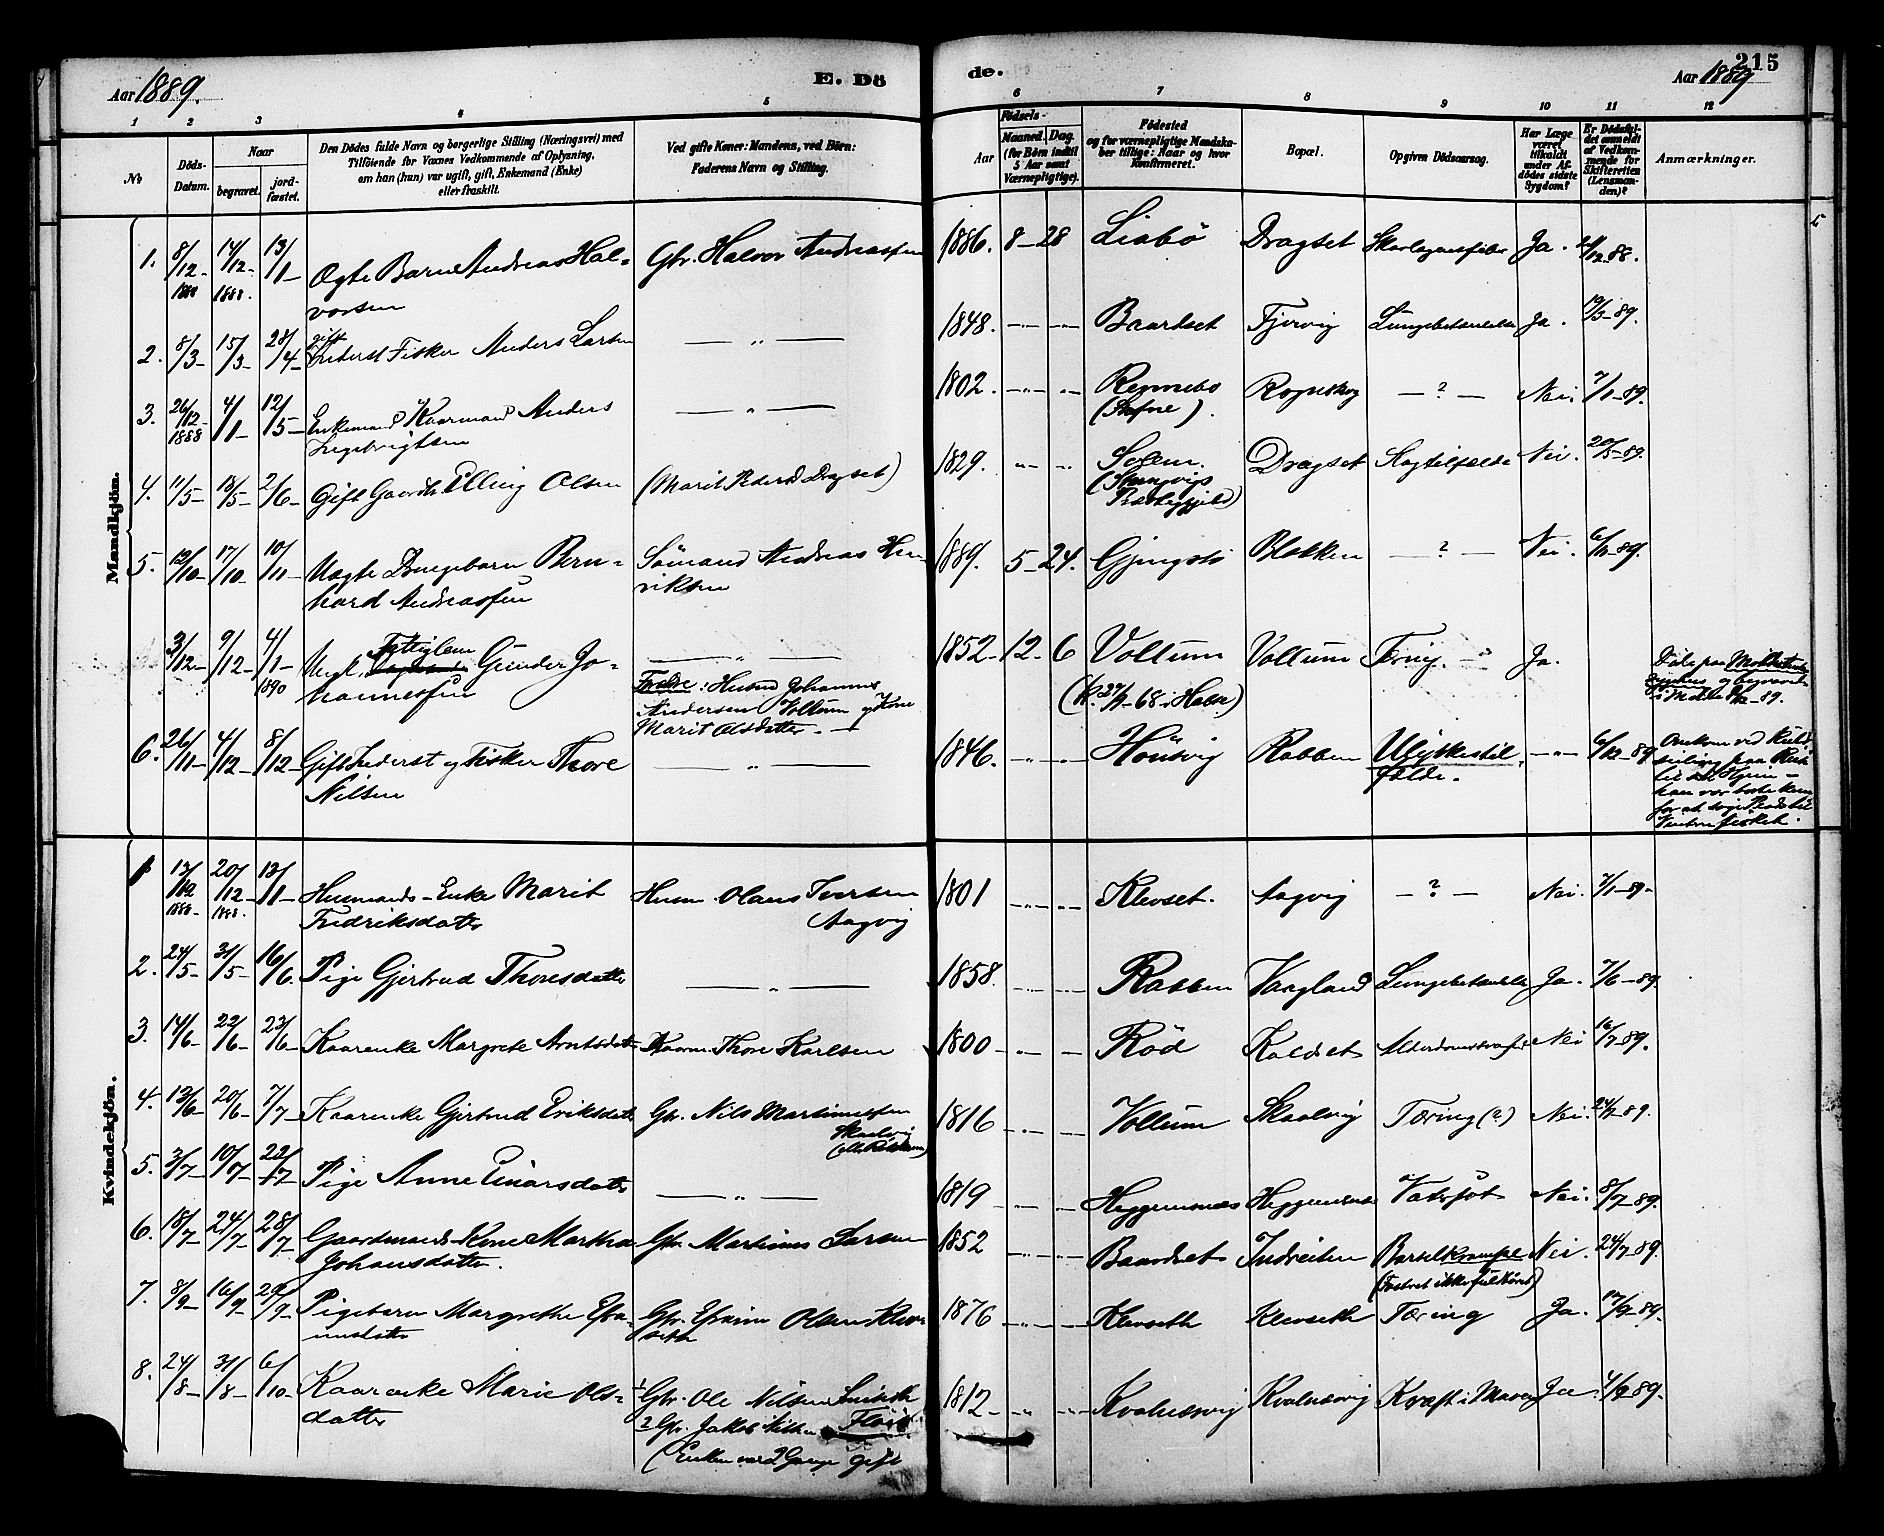 Aar 1889.
E. Dö
de.
Aar 1889
215
1 2 3 4 5 6 7 8 9 10 11 12
№
Döds-Datum.
Naar
begravet.
jord-fæstet.
Den Dödes fulde Navn og borgerlige Stilling (Næringsvei) med
Tilföiende for Voxnes Vedkommende af Oplysning,
om han (hun) var ugift, gift, Enkemand (Enke)
eller fraskilt.
Ved gifte Koner: Mandens, ved Börn:
Faderens Navn og Stilling.
Födsels-
Aar
Maaned. Dag.
(for Børn indtil
5 Aar samt
Værnepligtige).
Födested
og for værnepligtige Mandska-
ber tillige: Naar og hvor
konfirmeret.
Bopæl.
Opgiven Dödsaarsag.
Har Læge
været
tilkaldt
under Af-
dødes sidste
Sygdom?
Er Dödsfal-
det anmeldt
af Vedkom-
mende for
Skifteretten
(Lensman-
den)?
Anmærkninger.
Mandkjön.
1. 8/12 1888 14/12 1888. 13/1 Ægte Barn Andreas Hal-
vorsen
Gbr. Halvor Andreassen 1886. 8 28 Liabö Dragset Skarlagensfeber Ja. /12 88.
2. 8/3 15/3 28/4 gift Inderst Fisker Anders Larsen — „ — 1848. Baardset Fjervig Lungebetændelse Ja. 19/3-89.
3. 26/12 1888 4/1 12/5 Enkemand Kaarmand Anders
Ingebrigtsen
— „ — 1802. Rognskog — ? — Nei. 7/1-89.
4. 11/5 18/5 2/6 Gift Gaardbr. Elling Olsen (Marit Pedersd Dragset) 1829. Solem.
(Stangvigs
Præstegjeld)
Dragset Slagtilfælde Nei. 20/5-89.
5. 12/10 17/10 10/11 Uægte Drengebarn Bern-
hard Andreassen
Sömand Andreas Hen-
riksen
1889. 5 24. Blakken — ? — Nei. 89.
3/12 9/12 4/1 1890 Ugift Gunder Jo-
hannessen
— „ —
Fædre: Husmd Johannes
Andersen Vollum og Kone
Marit Olsdatter.
1852 12 6 Vollum Vollum Tæring. Ja.
Døde paa
og begravet
i Molde 9/12-89.
6. 26/11 4/12 8/12 Gift Inderst og Fisker Thore
Nilsen
— „ — 1846. Rabben Ulykkestil-
fælde.
6/12-89
Omkom ved
han var
for at
Vinterfisket.
Kvindekjön.
1 13/12 1888 20/12 1888. 13/1 Husmands-Enke Marit
Fredriksdatter
Husm. Olaus Iversen
Aagvig
1801 Klevset. Aagvig — ? — Nei. 7/1-89
2. 24/5 31/5 16/6 Pige Gjertrud Thoresdatter — „ — 1858. Rabben Vaagland Lungebetændelse Ja. 7/6-89.
3. 14/6 22/6 23/6 Kaarenke Margrete Arntsdatter Kaarm. Thore Karlsen 1800 Röd Koldset Alderdomssvaghed Nei 16/7-89.
4. 13/6 20/6 7/7 Kaarenke Gjertrud Eriksdatter Gbr. Nils Martinussen
Skaalvig
1816 Vollum Skaalvig Tæring (?) Nei. 89.
5. 3/7 10/7 22/7 Pige Anne Einarsdatter — „ — 1819 Heggemsnæs Heggemsnæs Vatersot Nei. 8/7-89.
6. 18/7 24/7 28/7 Gaardmands Kone Martha
Johansdatter.
Gbr. Martinus Larsen 1852 Baardset Indreiten Barselkrampe
(Fostret ikke fuldbåret)
Nei 24/7-89.
7. 8/9 16/9 29/9 Pigebarn Margrethe Efra-
imsdatter
Gbr. Efraim Olsen Klev-
seth
1876 Klevseth Klevseth Tæring Ja. 17/9-89.
8. 24/8 31/8 6/10 Kaarenke Marie Ols-
datter
1 Gbr. Ole Nilsen
2 Gbr. Jakob Nilsen
(Enken var 2 Gange gift
1812 Kvalnesvig Kvalnesvig Kræft i Maven Ja 4/9 89.